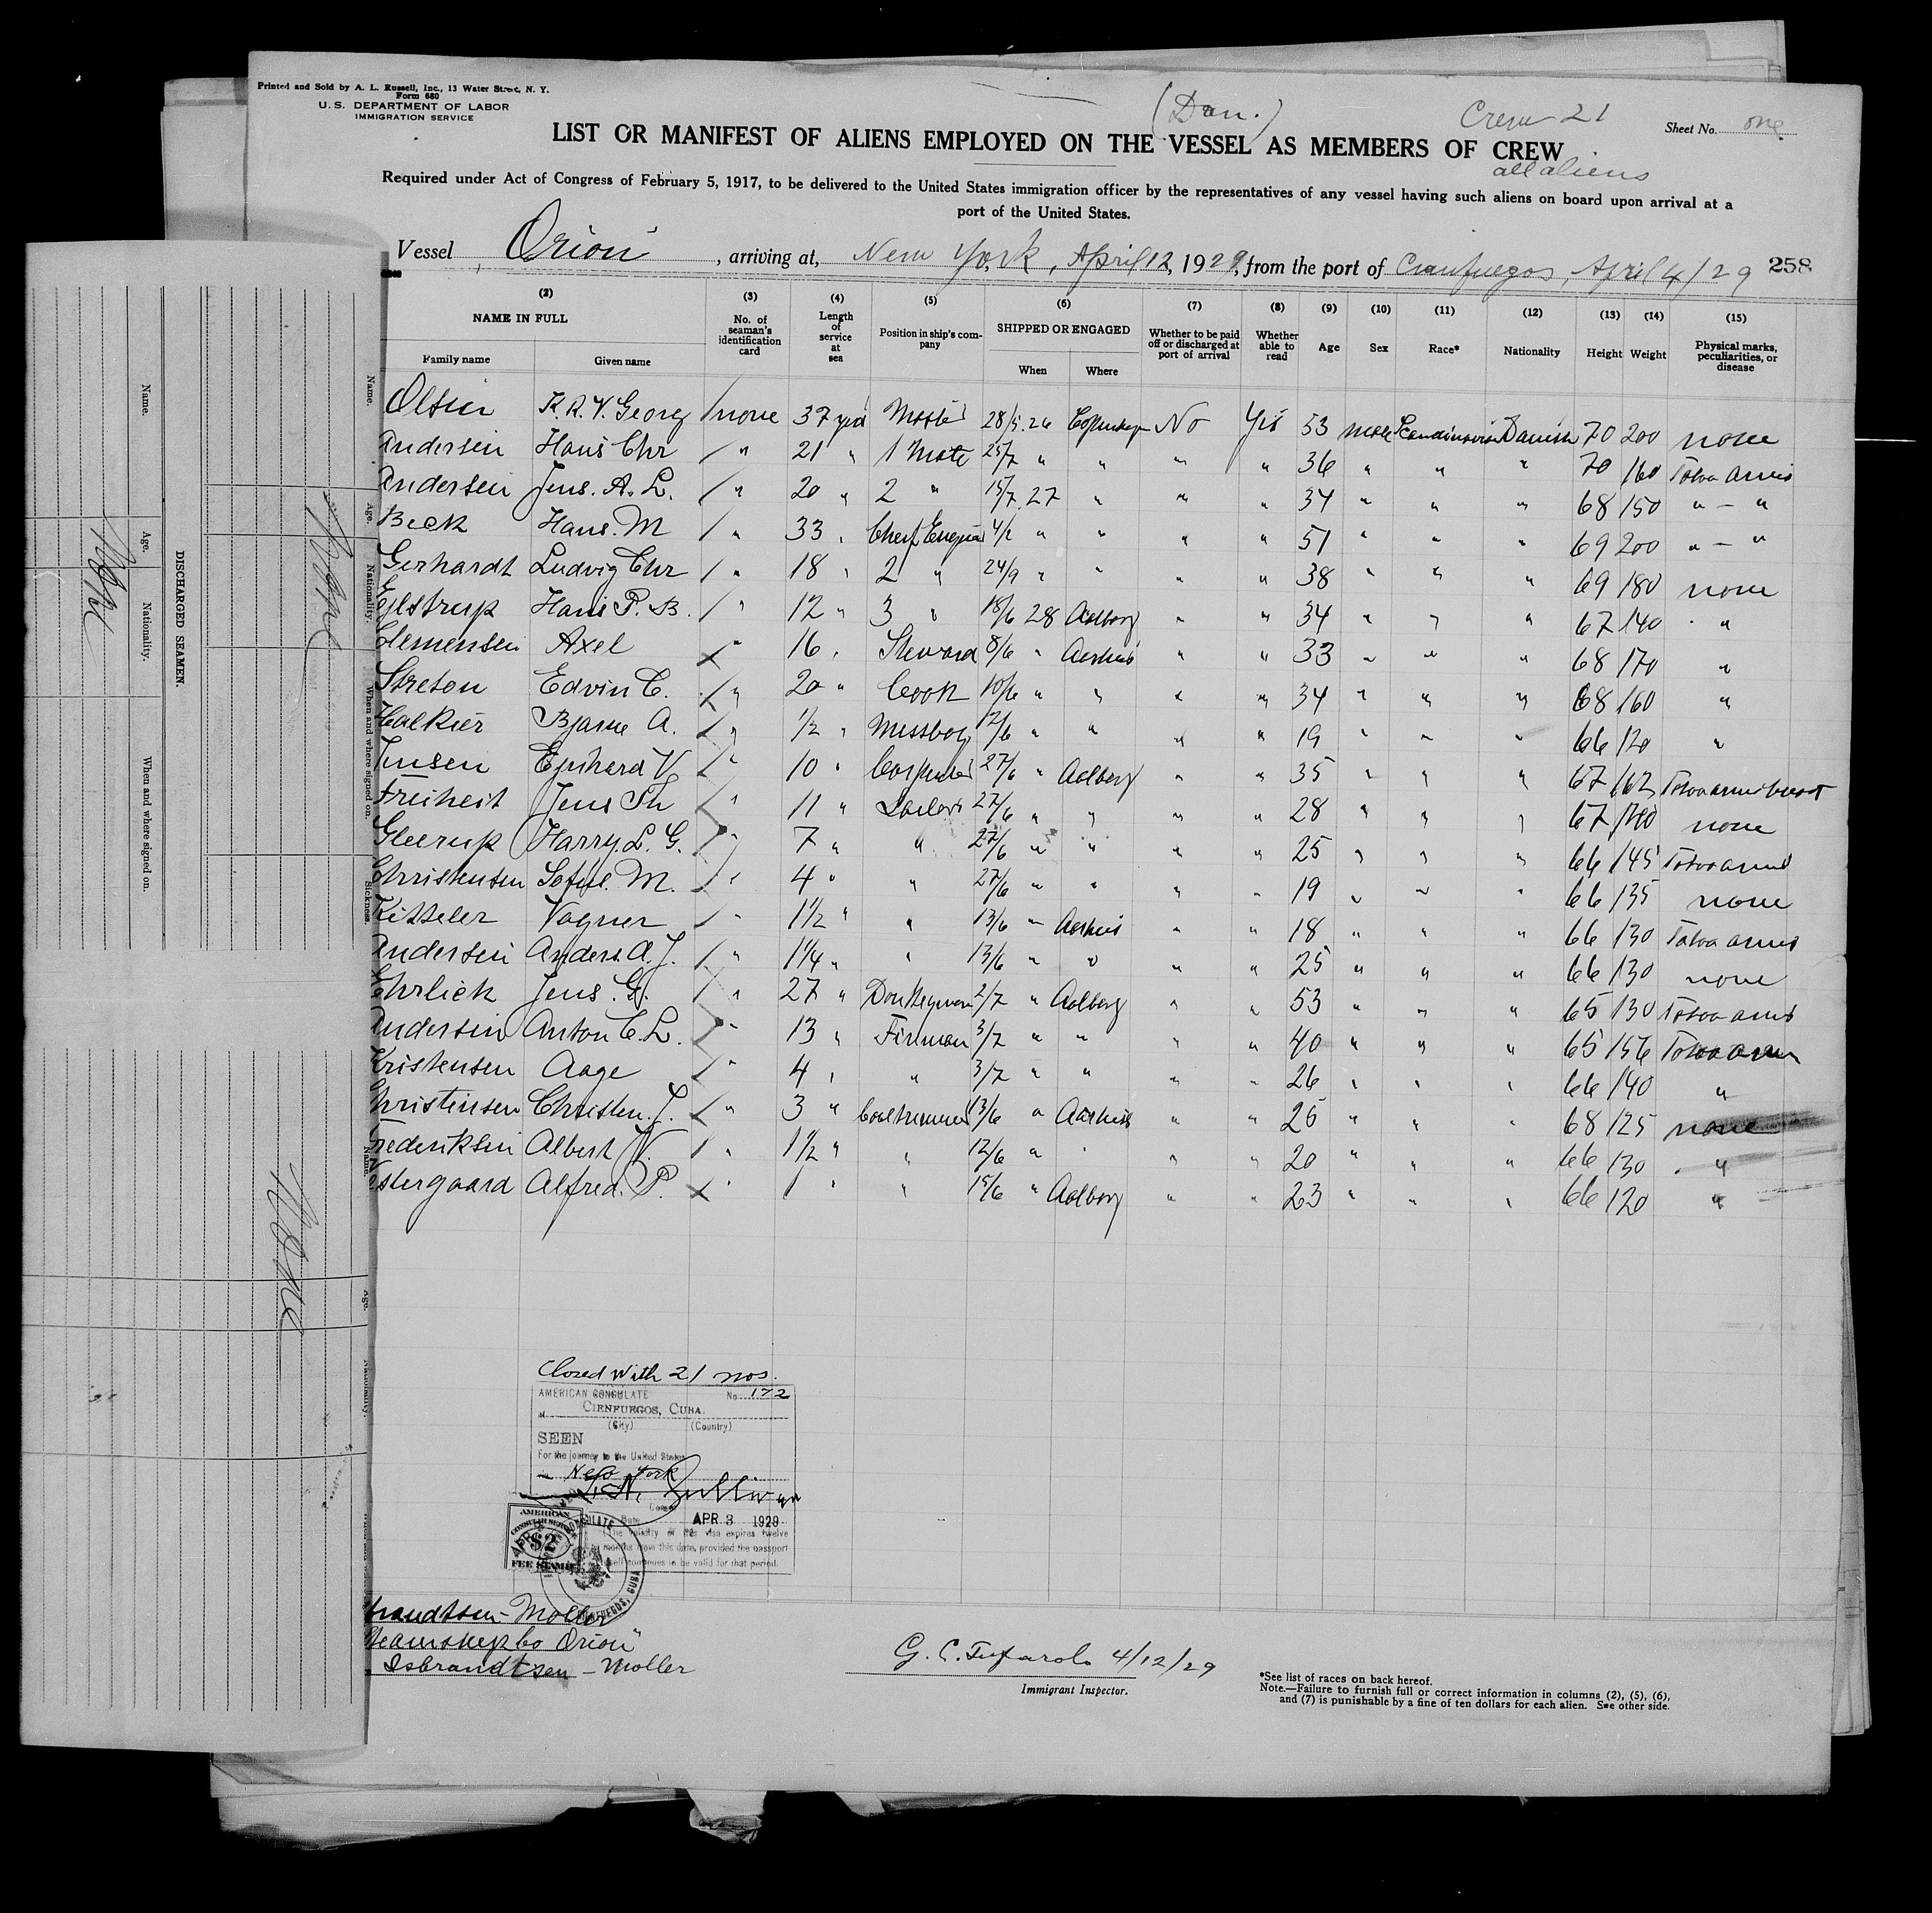 Printed and Sold by A. L. Russell, Inc., 13 Water Street, N. Y.
Form 680
U. S. DEPARTMENT OF LABOR
IMMIGRATION SERVICE
(Dan.)
Crew 21
Sheet No. one
LIST OR MANIFEST OF ALIENS EMPLOYED ON THE VESSEL AS MEMBERS OF CREW
all aliens
Required under Act of Congress of February 5, 1917, to be delivered to the United States immigration officer by the representatives of any vessel having such aliens on board upon arrival at a
port of the United States.
Vessel Orion, arriving at, New York, April 12, 1929, from the port of Cienfuegos, April 4/29 258
(2) (3) (4) (5) (6) (7) (8) (9) (10) (11) (12) (13) (14) (15)
NAME IN FULL No. of seaman's identification card Length of service at sea Position in ship's company SHIPPED OR ENGAGED Whether to be paid off or discharged at port of arrival Whether able to read Age Sex Race* Nationality Height Weight Physical marks, peculiarities, or disease
Family name Given name When Where
Olsen K. R. V. Georg none 37 yrs Master 28/5.26 Copenhagen No Yes 53 male Scandinavian Danish 70 200 none
Andersen Hans Chr " 21 " 1 Mate 25/7 " " " " 36 " " " 70 160 Totoo arms
Andersen Jens. A. L. " 20 " 2 " 15/7.27 " " " 34 " " " 68 150 " — "
Beck Hans. M " 33 " Cheif Engin 4/2 " " " " 51 " " " 69 200 " — "
Gerhardt Ludvig Chr " 18 " 2 " 24/9 " " " " 38 " " " 69 180 none
Ejlstrup Hans P. B. " 12 " 3 " 18/6 28 Aalborg " " 34 " " " 67 140 "
Clemensen Axel " 16 " Steward 8/6 " Aarhus " " 33 " " " 68 170 "
Streton Edvin C. " 20 " Cook 10/6 " " " " 34 " " " 68 160 "
Halkier Bjarne A. " 1/2 " Messboy 12/6 " " " " 19 " " " 66 120 "
Jensen Ejnhard V " 10 " Carpenter 27/6 " Aalborg " " 35 " " " 67 162 Totoo arms brest
Freiheit Jens Th " 11 " Sailors 27/6 " " " " 28 " " " 67 none
Gleerup Harry. L. G. " 7 " " 27/6 " " " " 25 " " " 66 145 Totoo arms
Christensen Sofus. M. " 4 " " 27/6 " " " " 19 " " " 66 135 none
Kisseler Vagner " 1 1/2 " " 13/6 " Aarhus " " 18 " " " 66 130 Totoo arms
Andersen Anders. A. J. " 1 1/4 " " 13/6 " " " " 25 " " " 66 130 none
Ehrlick Jens. G. " 27 " Donkeyman 2/7 " Aalborg " " 53 " " " 65 130 Totoo arms
Andersen Anton C. L. " 13 " Firman 3/7 " " " " 40 " " " 65 156 Totoo arms
Kristensen Aage " 4 " " 3/7 " " " " 26 " " " 66 140 "
Christensen Christen. J. " 3 " Coaltrimmer 13/6 " Aarhus " " 26 " " " 68 125 none
Frederiksen Albert V. " 1 1/2 " " 13/6 " " " " 20 " " " 66 130 "
Østergaard Alfred. P. " 1 " " 15/6 " Aalborg " " 23 " " " 66 120 "
Closed with 21 nos.
AMERICAN CONSULATE No. 172
at CIENFUEGOS, CUBA.
(City) (Country)
SEEN
For the journey to the United States
New York
Sullivan
Consul
Date APR 3 1929
The validity of this visa expires twelve
months from this date, provided the passport
itself continues to be valid for that period.
AMERICAN
CONSULAR SERVICE
$2
FEE STAMP
CONSULATE
CIENFUEGOS, CUBA
brandtsen-Moller
Steamship Co Orion"
Isbrandtsen - Moller
G. C. Tufarolo 4/12/29
Immigrant Inspector.
*See list of races on back hereof.
Note.—Failure to furnish full or correct information in columns (2), (5), (6),
and (7) is punishable by a fine of ten dollars for each alien. See other side.
DISCHARGED SEAMEN.
Name. Age. Nationality. When and where signed on.
None
Name. Age. Nationality. When and where signed on. Sickness.
None
Name. Age. Nationality.
None